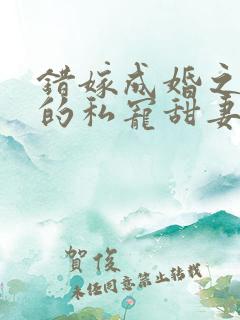 错嫁成婚之
的私宠甜妻
贺俊
未经同意禁止转载